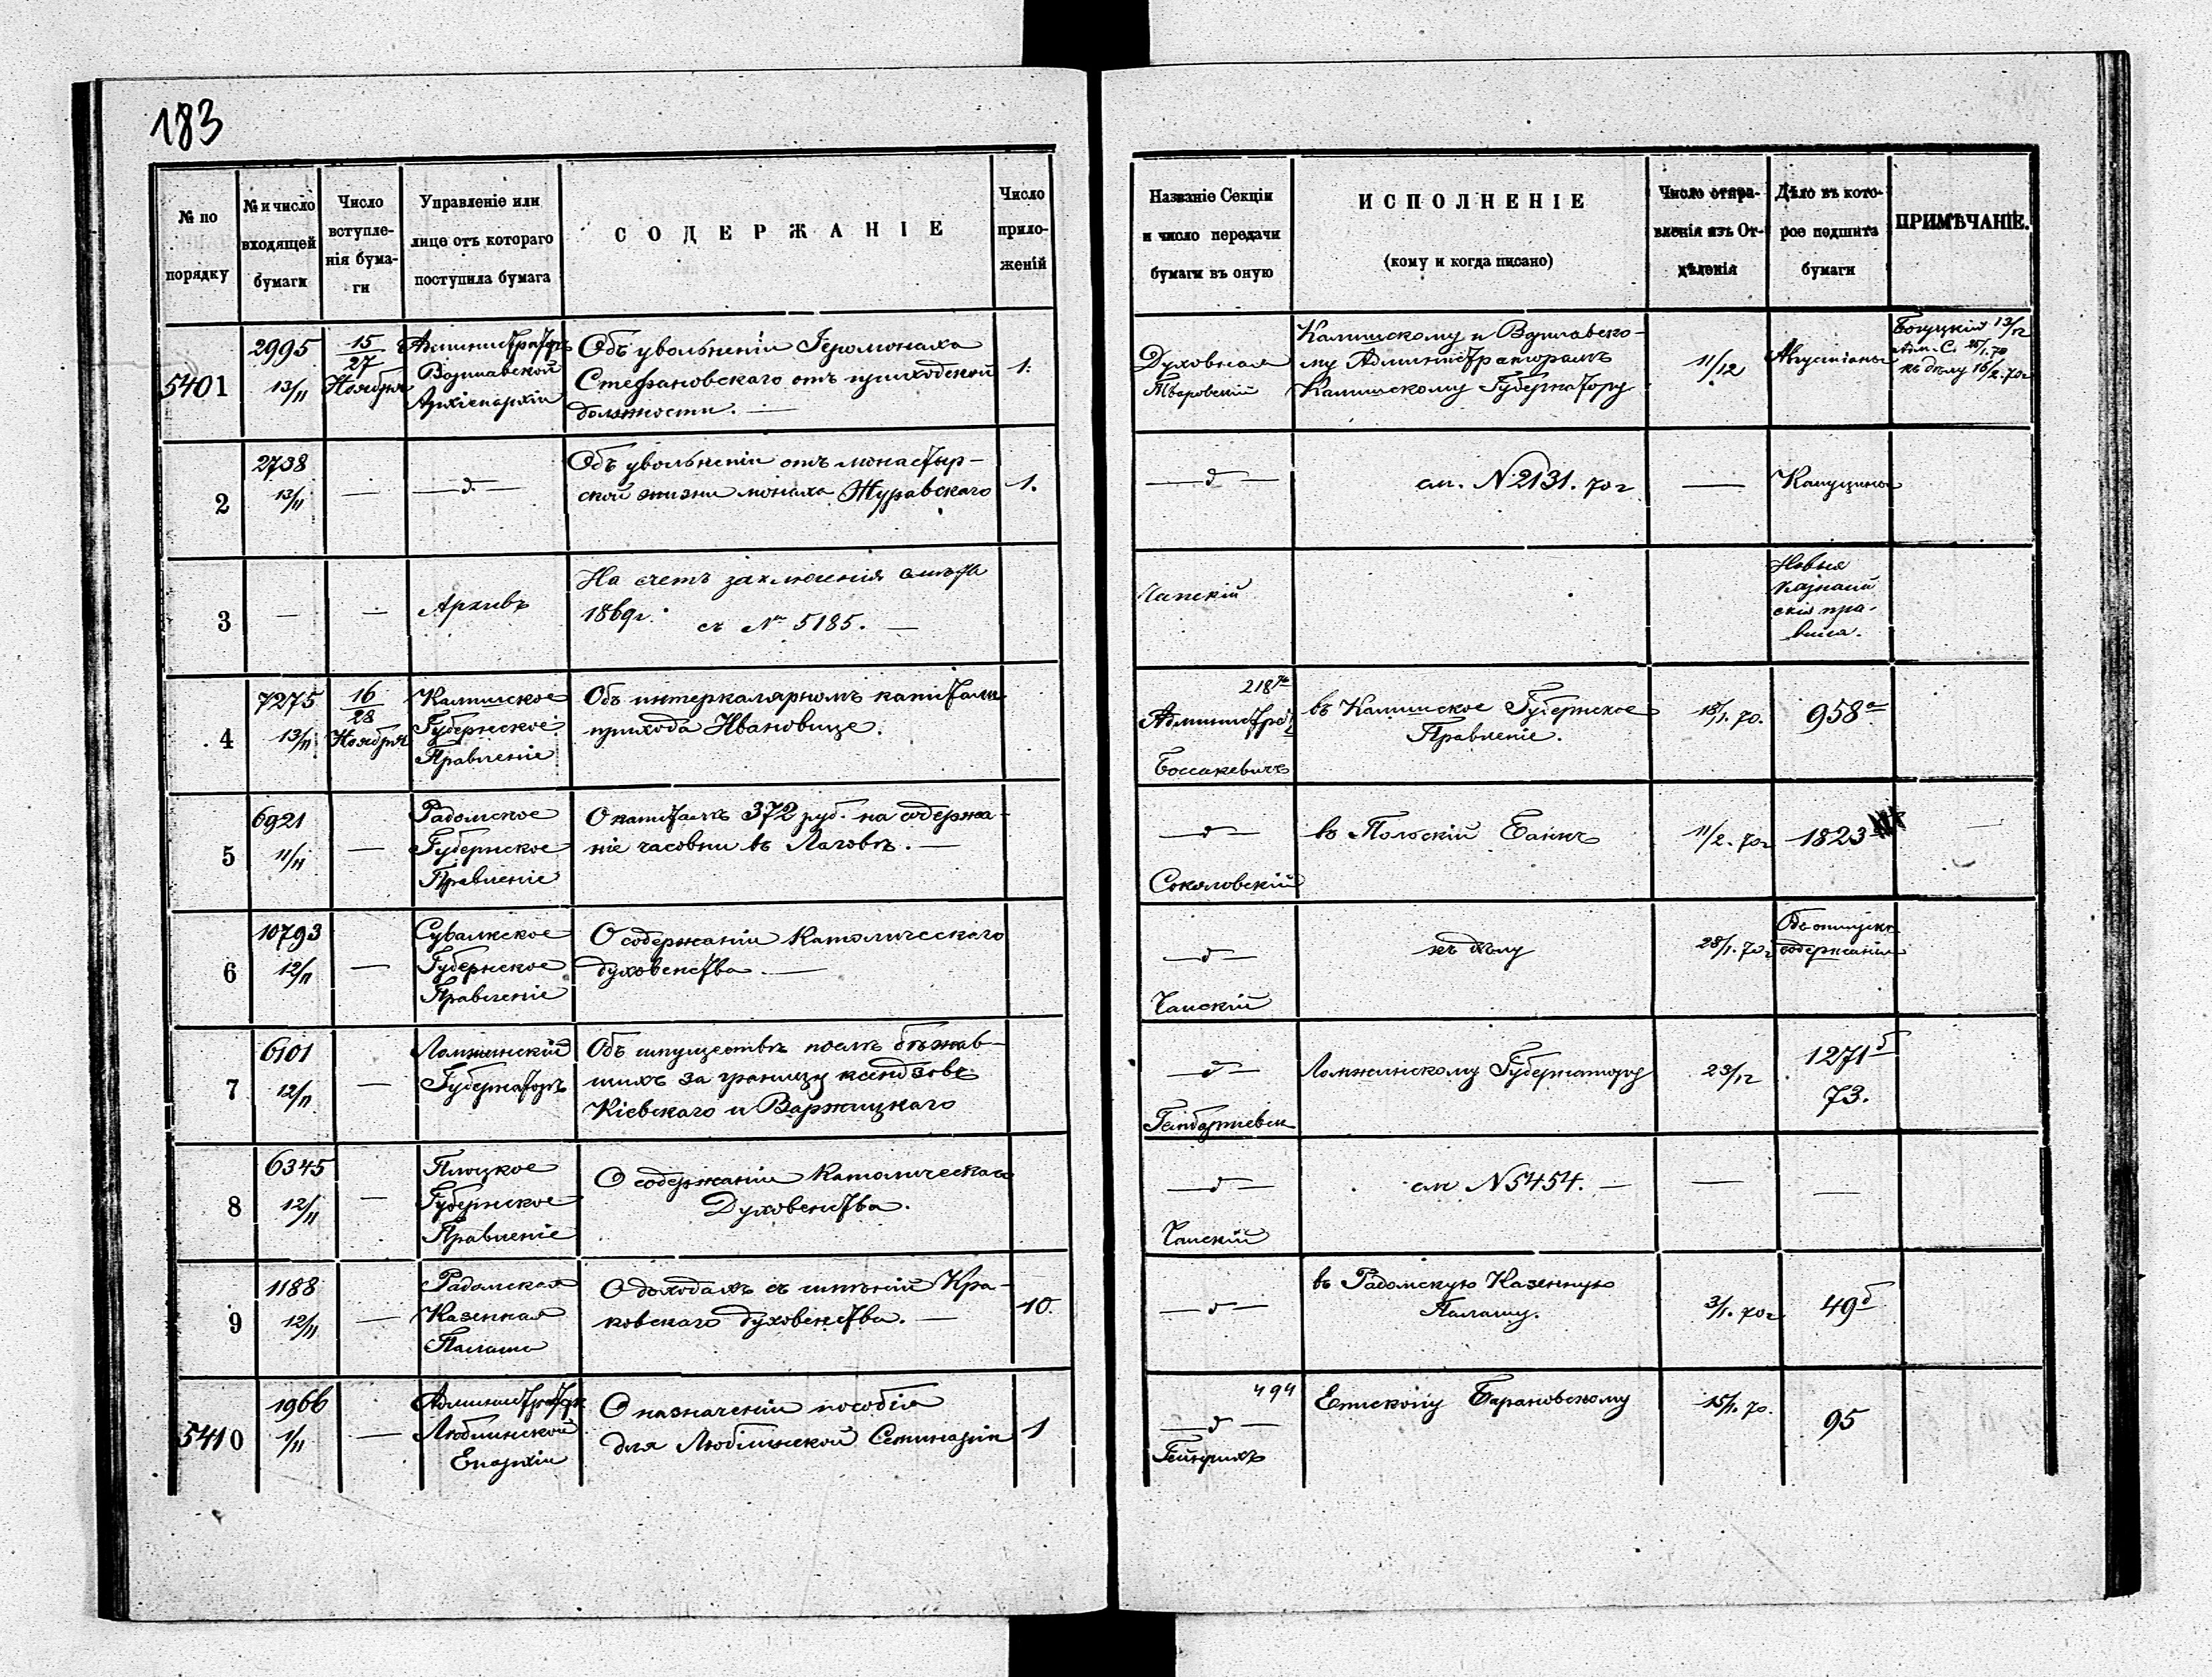 183
№ по порядку
№ и число входящей бумаги
Число вступленія бумаги
Управленіе или лице отъ котораго поступила бумага
СОДЕРЖАНІЕ
Число приложеній
Названіе Секціи и число передачи бумаги въ оную
ИСПОЛНЕНІЕ
(кому и когда писано)
Число отправленія изъ Отдѣленія
Дѣло въ которое подшита бумаги
ПРИМѢЧАНІЕ.
5401
2995
13/11
15/27
Ноября
Администраторъ
Варшавской
Архіепархіи
Объ увольненіи Іеромонаха
Стефановскаго отъ приходской
должности. —
1.
Духовная
Тваровскій
Калишскому и Варшавско-
му Администраторамъ
Калишскому Губернатору
11/12
Августіаны
Богуцкій 13/12
25/1. 70
къ дѣлу 16/2. 70г
2
2738
13/11
—
— д —
Объ увольненіи отъ монастыр-
ской жизни монаха Журавскаго
1.
— д —
см. N 2131. 70г
—
Капуцины
3
—
—
Архивъ
На счетъ заключенія смѣты
1869г. съ № 5185. —
Новыя
скія пра-
вила.
4
7275
13/11
16/28
Ноября
Калишское
Губернское
Правленіе
Объ интеркалярномъ капиталѣ
прихода Ивановице.
218 70
Администра
въ Калишское Губернское
Правленіе.
18/1. 70.
958 а
5
6921
11/11
—
Радомское
Губернское
Правленіе
О капиталѣ 372 руб. на содержа-
ніе часовни въ Лаговѣ. —
— д —
Соколовскій
въ Польскій Банкъ
11/2. 70г
1823
—
6
10793
12/11
—
Сувалкское
Губернское
Правленіе
О содержаніи Католическаго
духовенства. —
— д —
Чапскій
къ дѣлу
28/1. 70г
Объ отпускѣ
содержанія
7
6101
12/11
—
Ломжинскій
Губернаторъ
Объ имуществѣ послѣ бѣжав-
шихъ за границу ксендзовъ
Кіевскаго и Варжицкаго
— д —
Ломжинскому Губернатору
23/12
1271 б
73.
8
6345
12/11
—
Плоцкое
Губернское
Правленіе
О содержаніи Католическаго
Духовенства.
— д —
Чапскій
см N 5454. —
—
—
9
1188
12/11
—
Радомская
Казенная
Палата
О доходахъ съ имѣній Кра-
ковскаго духовенства. —
10.
— д —
въ Радомскую Казенную
Палату.
3/1. 70г
49 б
5410
1966
1/11
—
Администраторъ
Люблинской
Епархіи
О назначеніи пособія
для Люблинской Семинаріи
1
494
— д —
Гейнрихъ
Епископу Барановскому
15/1. 70.
95